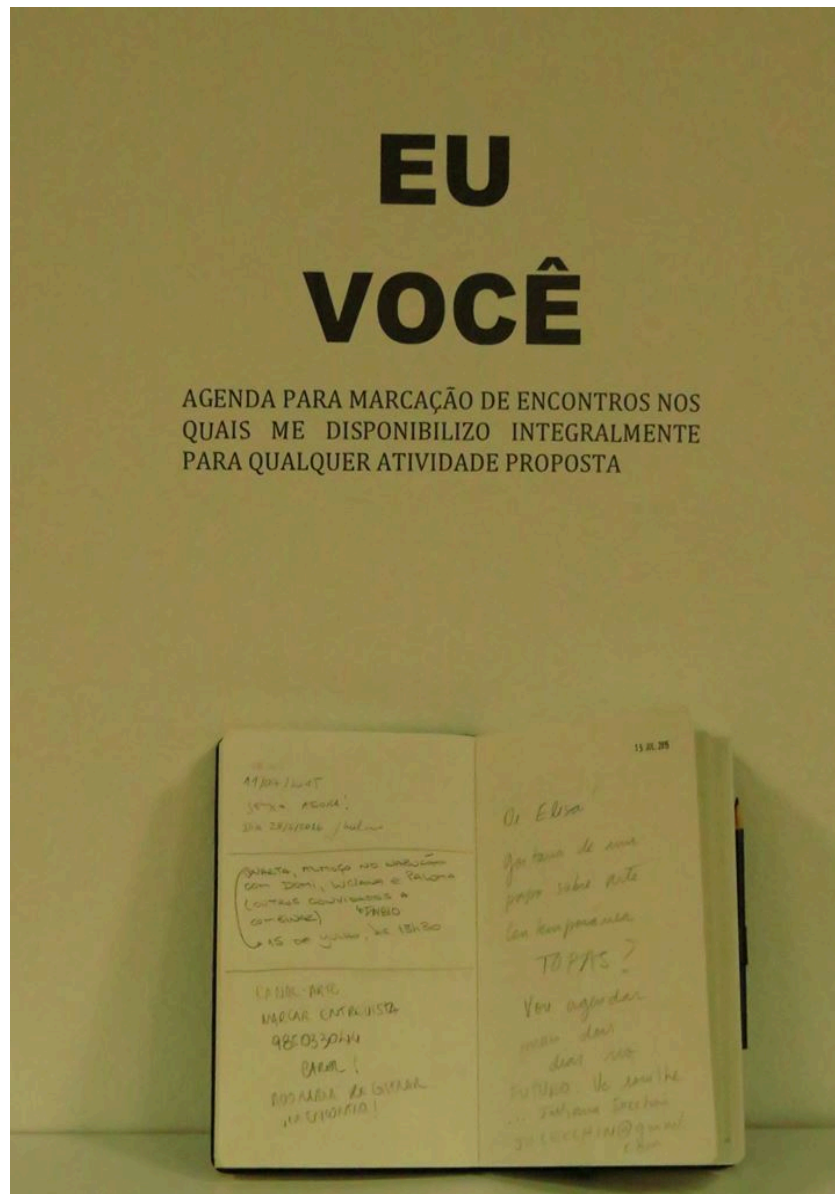 EU
VOCÊ
AGENDA PARA MARCAÇÃO DE ENCONTROS NOS
QUAIS ME DISPONIBILIZO INTEGRALMENTE
PARA QUALQUER ATIVIDADE PROPOSTA
AGORA!
COM DOMI, LUCIANA E PALOMA
(OUTROS CONVIDADOS A
COMBINAR)
15 DE JULHO, ÀS 15H30
CANAL ARTE
MARCAR ENTREVISTA
CAROL!
15 JUL 2015
Oi Elisa!
gostaria de um
papo sobre arte
contemporânea
TOPAS?
Vou agendar
mais dois
dias no
FUTURO. Vc escolhe